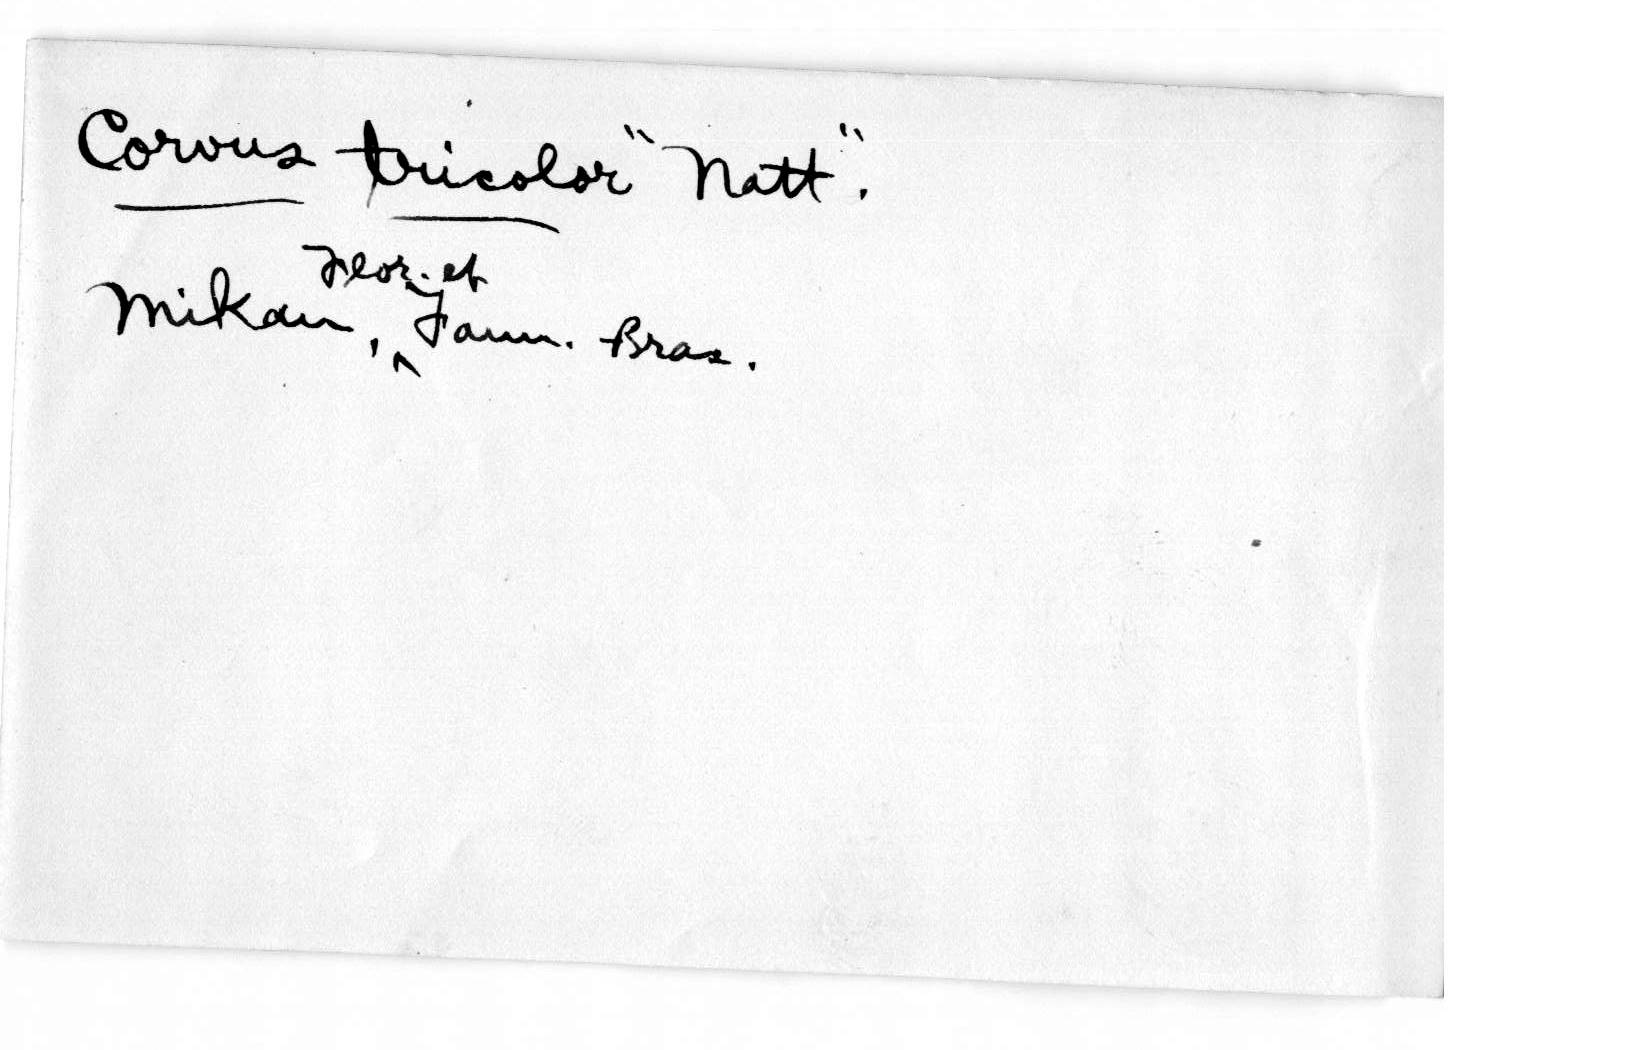 Corvus tricolor "Natt".
Mikan, Flor. et Faun. Bras.